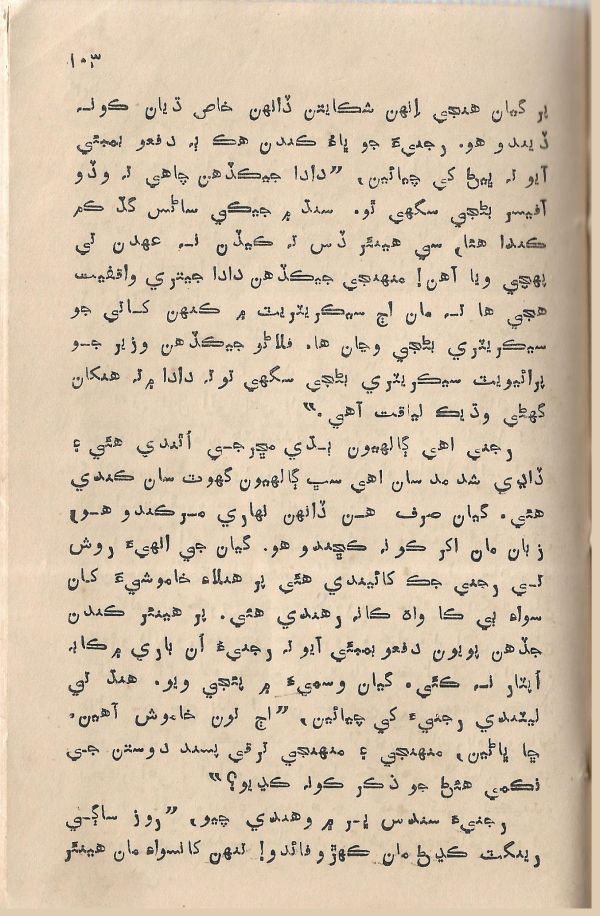 ۱۰۳
پر گيان هنجي اِنهن شڪايتن ڏانهن خاص ڌيان ڪونہ
ڏيندو هو. رجنيءَ جو ڀاءُ ڪندن هڪ ٻہ دفعو بمبئي
آيو تہ ڀيڻ کي چيائين، ”دادا جيڪڏهن چاهي تہ وڏو
آفيسر بڻجي سگهي ٿو. سنڌ ۾ جيڪي ساڻس گڏ ڪم
ڪندا هئا، سي هينئر ڏس تہ ڪيڏن نہ عهدن تي
پهچي ويا آهن! منهنجي جيڪڏهن دادا جيتري واقفيت
هجي ها تہ مان اڄ سيڪريٽريٽ ۾ ڪنهن کاتي جو
سيڪريٽري بڻجي وڃان ها. فلاڻو جيڪڏهن وزير جو
پرائيويٽ سيڪريٽري بڻجي سگهي ٿو تہ دادا ۾ تہ هنکان
گهڻي وڌيڪ لياقت آهي.“
رجني اهي ڳالهيون ٻڌي مڇرجي اُٿندي هئي ۽
ڏاڍي شد مد سان اهي سڀ ڳالهيون گهوٽ سان ڪندي
هئي. گيان صرف هن ڏانهن نهاري مرڪندو هو،
زبان مان اکر ڪونہ ڪڇندو هو. گيان جي انهيءَ روش
تي رجني جڪ کائيندي هئي پر هنلاءِ خاموشيءَ کان
سواءِ ٻي ڪا واٽ ڪانہ رهندي هئي. پر هينئر ڪندن
جڏهن پويون دفعو بمبئي آيو تہ رجنيءَ اُن باري ۾ ڪابہ
اُپٽار نہ ڪئي. گيان وسميءَ ۾ پئجي ويو. هنڌ تي
ليٽندي رجنيءَ کي چيائين، ”اڄ تون خاموش آهين.
ڇا ڀاڻين، منهنجي ۽ منهنجي ترقي پسند دوستن جي
نڪمي هئڻ جو ذڪر ڪونہ ڪڍيو؟“
رجنيءَ سندس ڀر ۾ وهندي چيو، ”روز ساڳي
رينگٽ ڪڍڻ مان ڪهڙو فائدو! تنهن کانسواءِ مان هينئر